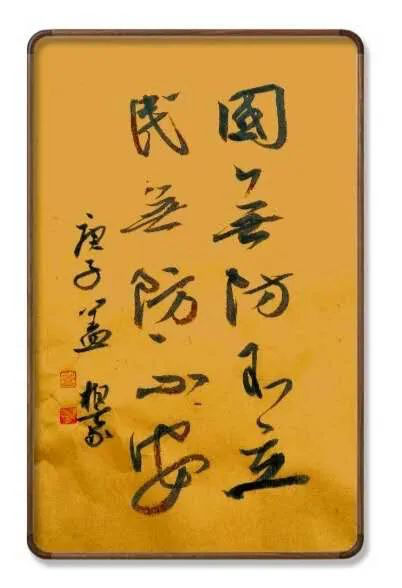 國無防不立
民無防不安
庚子孟